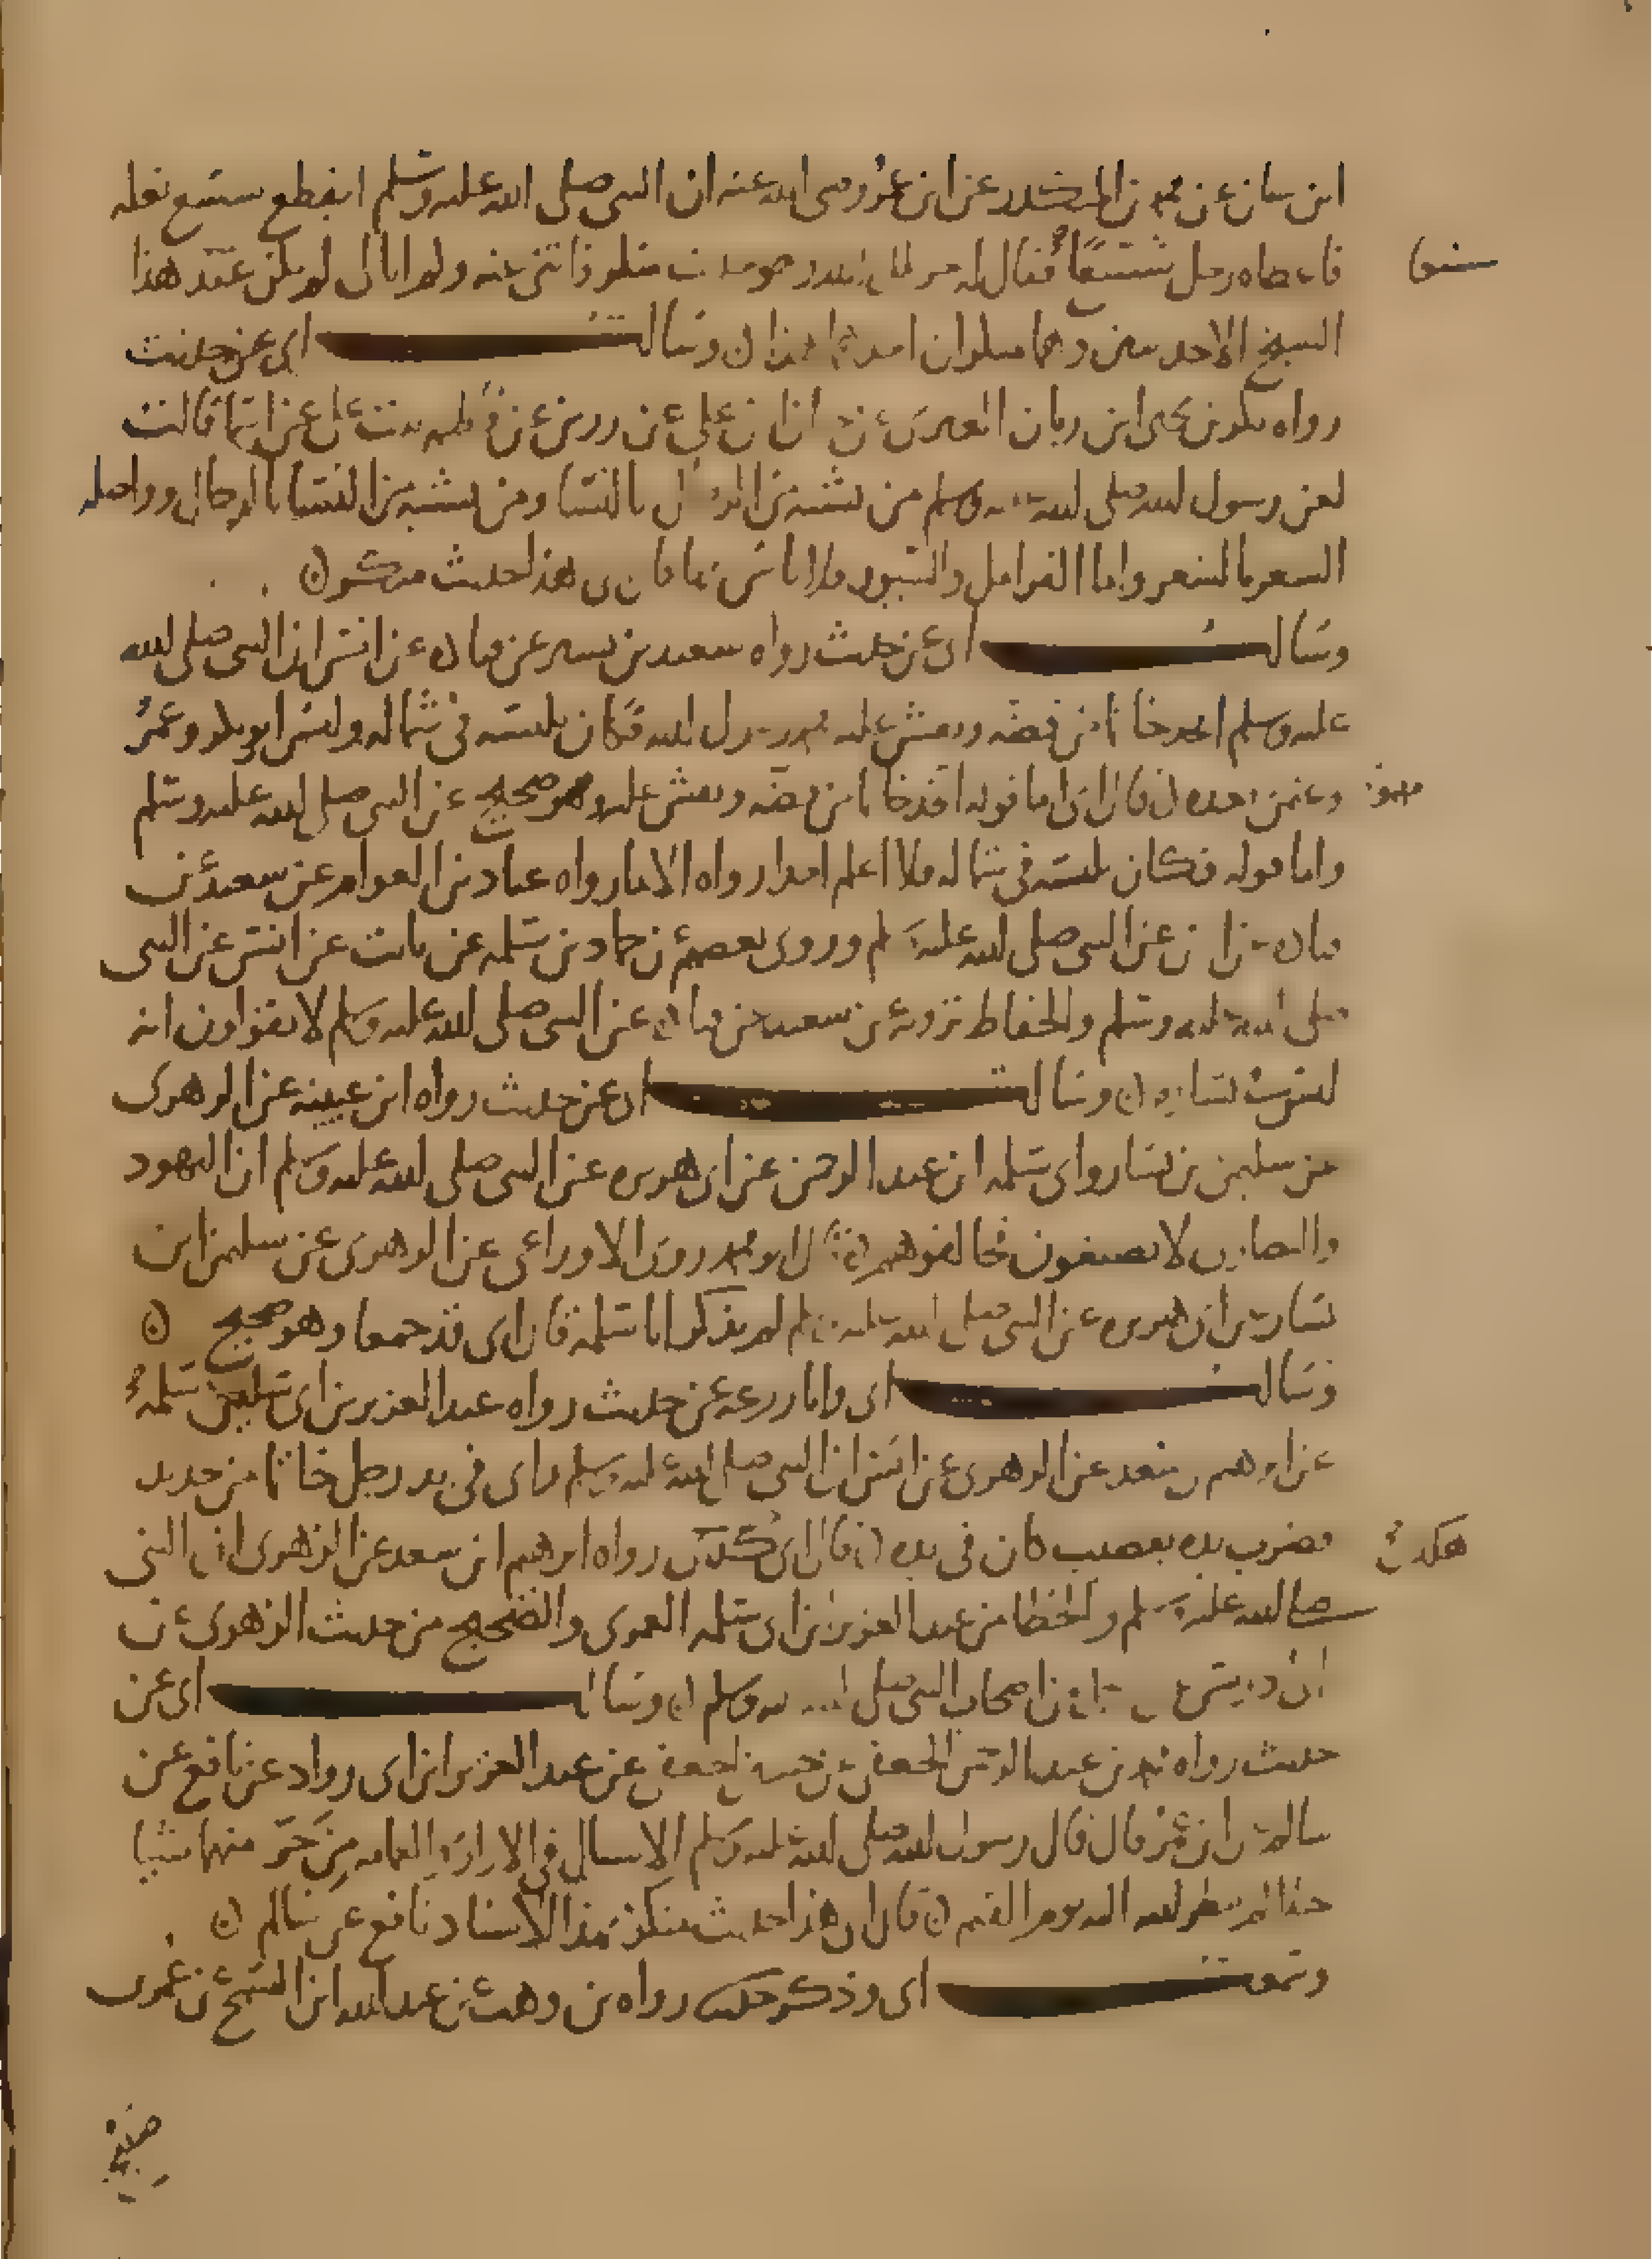 ابن سان عن محمد بن المنكدر عن ابن عمر رضي الله عنه ان النبي صلى الله عليه وسلم انقطع شسع نعله
فاعطاه رجل شسعًا فقال له
ولم ابال لو يكن عند هذا
شسعا
الشيخ الا حديثين وهما منكران احدهما هذا ن وسالت ابي عن حديث
رواه بكر بن يحيى ابن زبان العنزي عن حبان بن علي عن رزين عن فاطمة بنت علي عن ابيها قالت
لعن رسول الله صلى الله عليه وسلم من تشبه من الرجال بالنسا ومن تشبه من النسا بالرجال وواصله
الشعر بالشعر واما القرامل والسيور فلا باس بها قال ابي هذا حديث منكر ن
وسالت ابي عن حديث رواه سعيد بن بشير عن قتادة عن انس ان النبي صلى الله
عليه وسلم اتخذ خاتما من فضه ونقش عليه محمد رسول الله فكان يلبسه في شماله ولبس ابو بكر وعمر
وعثمن بعده ن قال ابي اما قوله اتخذ خاتما من فضه ونقش عليه وهو صحيح عن النبي صلى الله عليه وسلم
فهو
واما قوله فكان يلبسه في شماله فلا اعلم احدا رواه الا ما رواه عباد بن العوام عن سعيد عن
قتادة عن انس عن النبي صلى الله عليه وسلم وروى بعضهم عن حماد بن سلمه عن ثابت عن انس عن النبي
صلى الله عليه وسلم والحفاظ تروي عن سعيد عن قتادة عن النبي صلى الله عليه وسلم لا يقولون انه
لبس في يساره ن وسالت ابي عن حديث رواه ابن عيينه عن الزهري
عن سليمن بن يسار وابي سلمه ابن عبد الرحمن عن ابي هريره عن النبي صلى الله عليه وسلم ان اليهود
والنصارى لا يصبغون فخالفوهم ن قال ابو محمد روى الاوزاعي عن الزهري عن سليمن ابن
يسار عن ابي هريره عن النبي صلى الله عليه وسلم لم يذكر ابا سلمة قال ابي قد جمعا وهو صحيح ن
وسالت ابي وابا زرعه عن حديث رواه عبد العزيز بن ابي سلمه
عن ابرهيم بن سعد عن الزهري عن انس ان النبي صلى الله عليه وسلم راى في يد رجل خاتما من حديد
فضرب يده بقضيب كان في يده ن قال ابي رواه ابرهيم ابن سعد عن الزهري ان النبي
هكذي
صلى الله عليه وسلم والخطا من عبد العزيز بن ابي سلمه العمري والصحيح من حديث الزهري عن
ابي ادريس عن رجل من اصحاب النبي صلى الله عليه وسلم ن وسالت ابي عن
حديث رواه محمد بن عبد الرحمن الجعفي عن حسين الجعفي عن عبد العزيز ابن ابي رواد عن نافع عن
سالم عن ابن عمر قال قال رسول الله صلى الله عليه وسلم الاسبال في الازار والعمامه من جر منها شيا
خيلا لم ينظر الله اليه يوم القيمه ن قال ابي هذا حديث منكر بهذا الاسناد نافع عن سالم ن
وسمعت ابي وذكر حديث رواه بن وهب عن عبد الله ابن السمح عن عمر بن